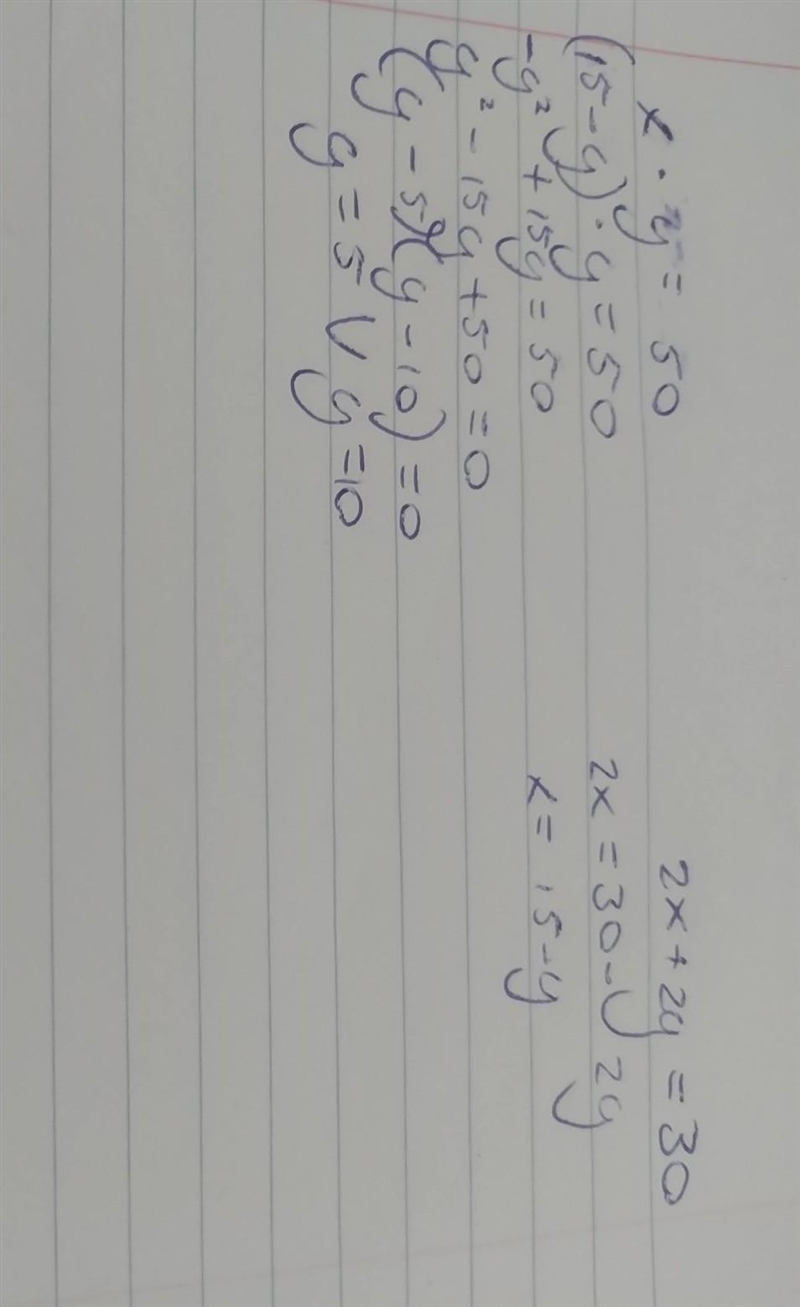 x · y = 50
(15 - y) · y = 50
-y² + 15y = 50
y² - 15y + 50 = 0
(y - 5)(y - 10) = 0
y = 5 ∨ y = 10
2x + 2y = 30
2x = 30 - y 2y
x = 15 - y